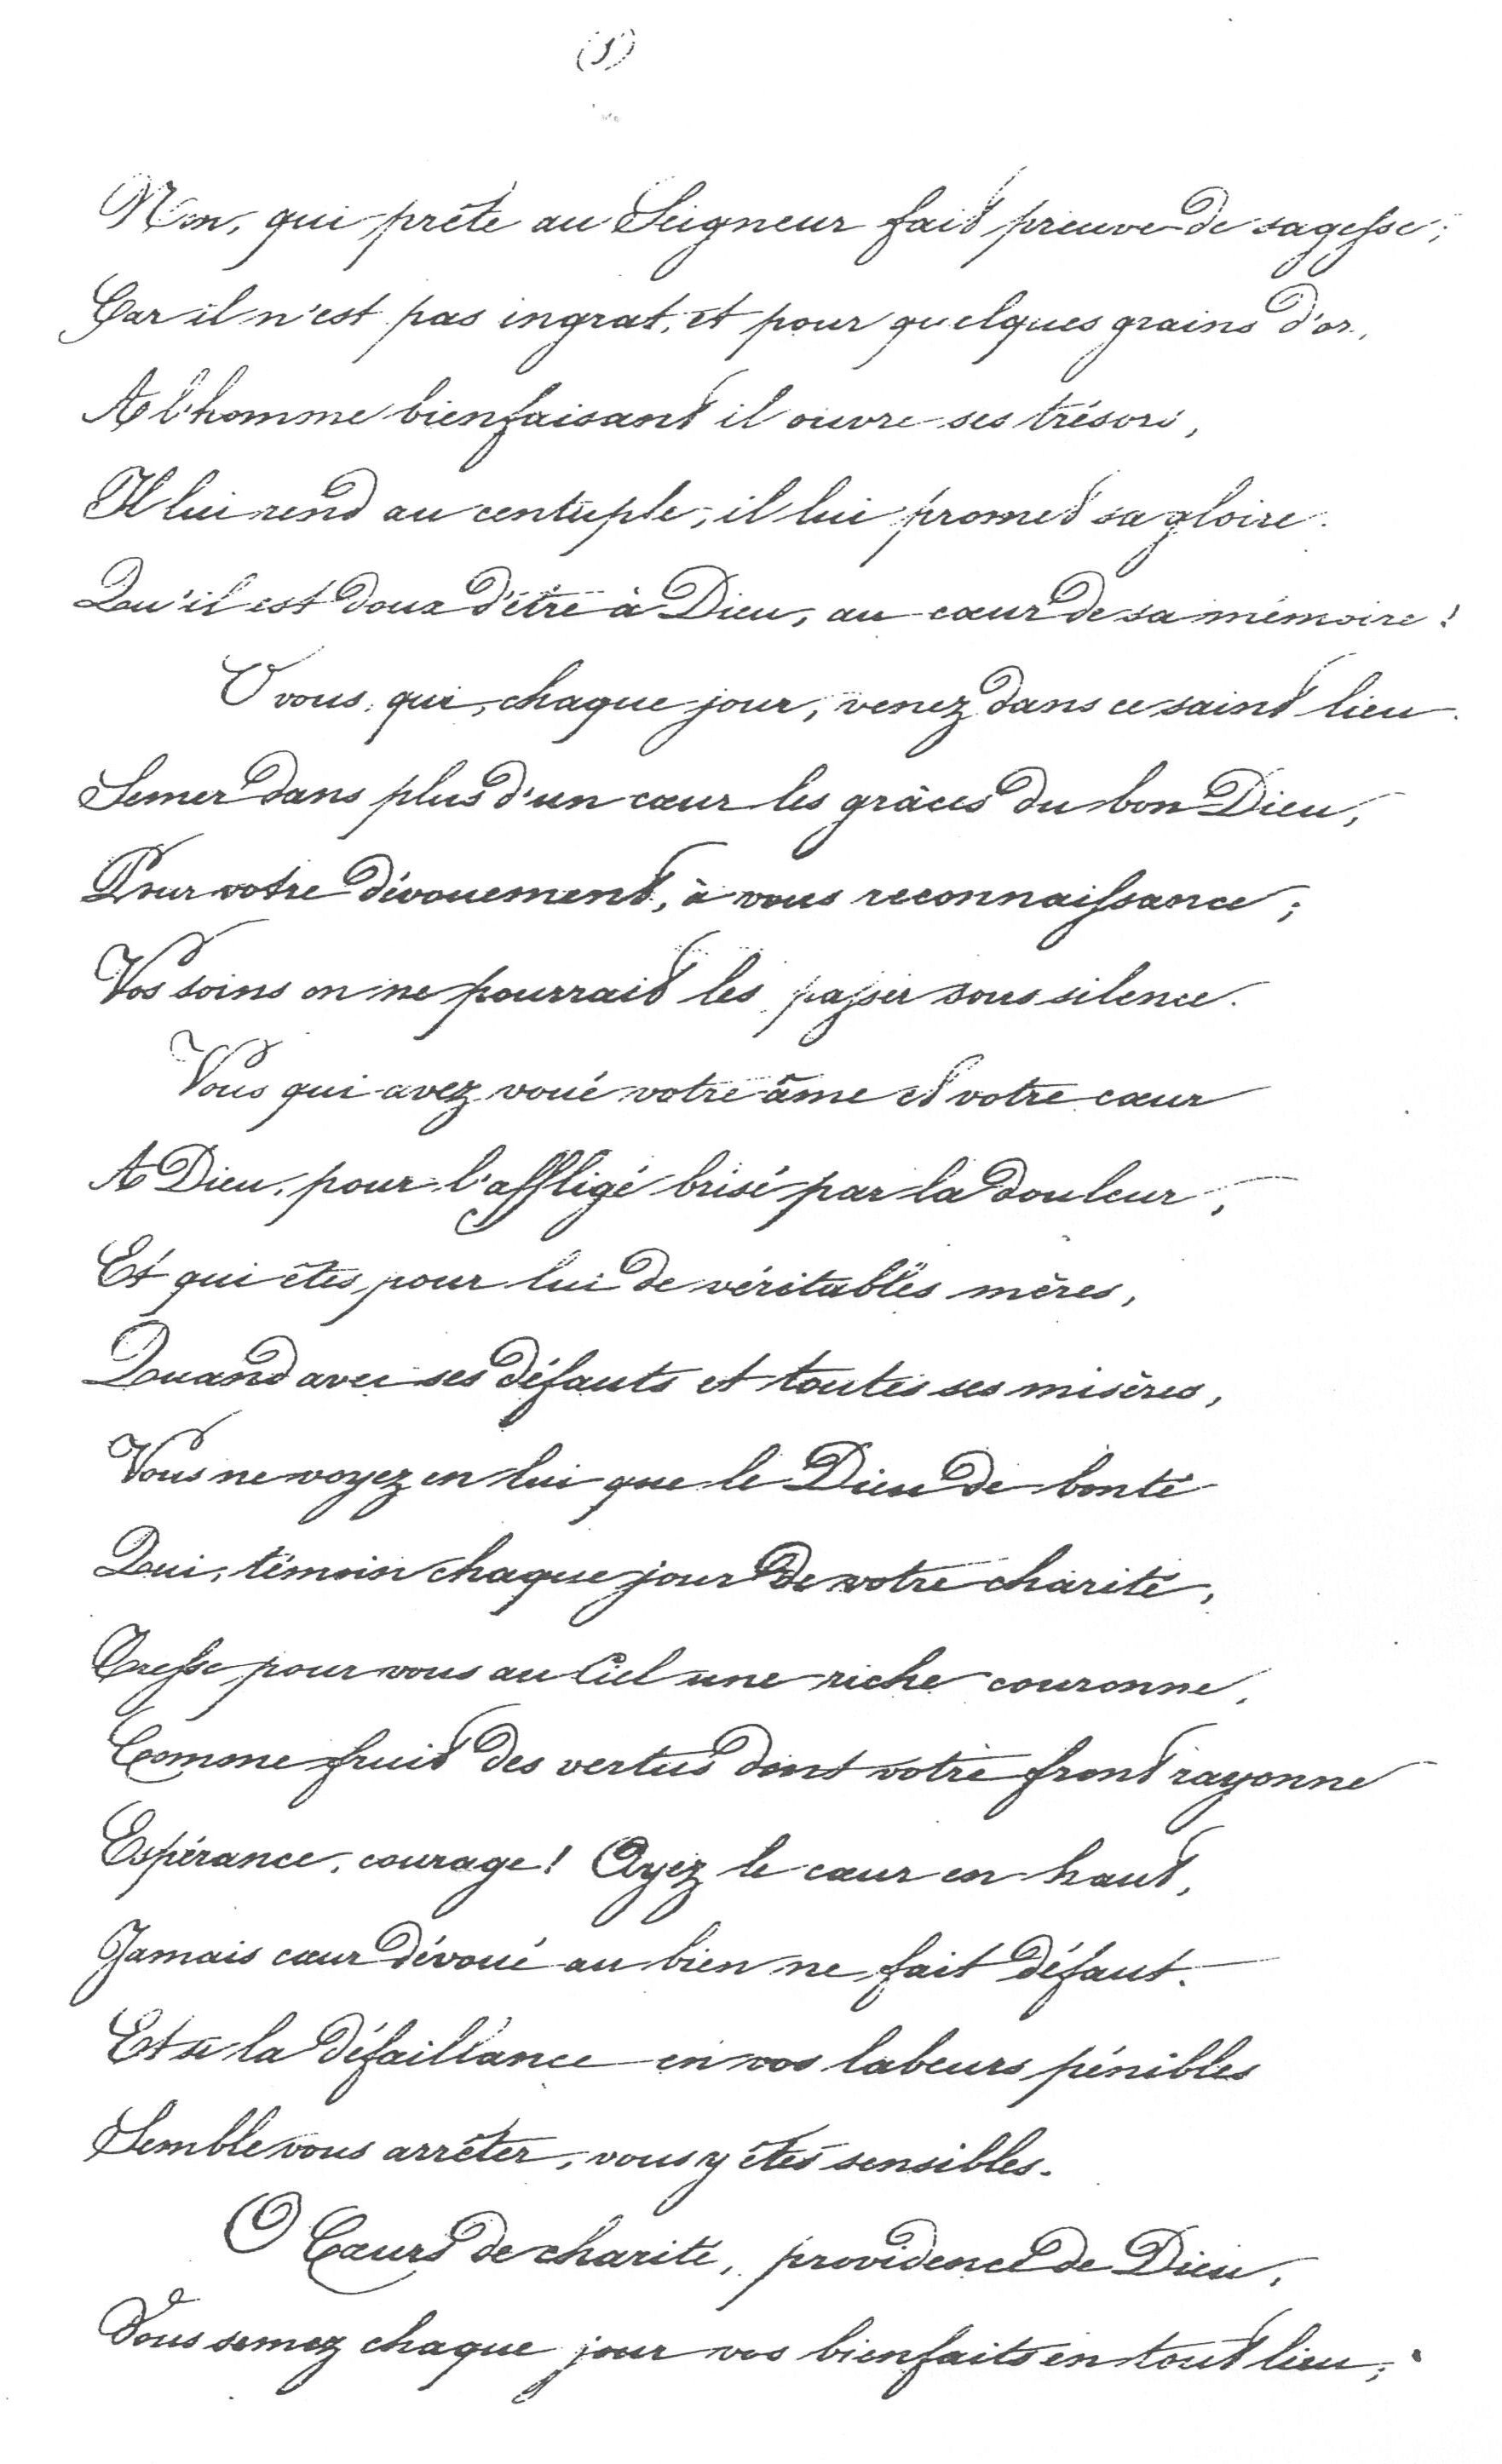 (5)
Non, qui prête au Seigneur fait preuve de sagesse;
Car il n'est pas ingrat, et pour quelques grains d'or,
A l'homme bienfaisant il ouvre ses trésors,
Il lui rend au centuple, il lui promet sa gloire.
Qu'il est doux d'être à Dieu, au cœur de sa mémoire!
O vous, qui, chaque jour, venez dans ce saint lieu
Semer dans plus d'un cœur les grâces du bon Dieu,
Pour votre dévouement, à vous reconnaissance;
Vos soins on ne pourrait les passer sous silence.
Vous qui avez voué votre âme et votre cœur
A Dieu, pour l'affligé brisé par la douleur,
Et qui êtes pour lui de véritables mères,
Quand avec ses défauts et toutes ses misères,
Vous ne voyez en lui que le Dieu de bonté
Qui, témoin chaque jour de votre charité,
Tresse pour vous au Ciel une riche couronne,
Comme fruit des vertus dont votre front rayonne
Espérance, courage! Ayez le cœur en haut,
Jamais cœur dévoué au bien ne fait défaut.
Et si la défaillance en vos labeurs pénibles
Semble vous arrêter, vous y êtes sensibles.
O Cœurs de charité, providence de Dieu,
Vous semez chaque jour vos bienfaits en tout lieu;